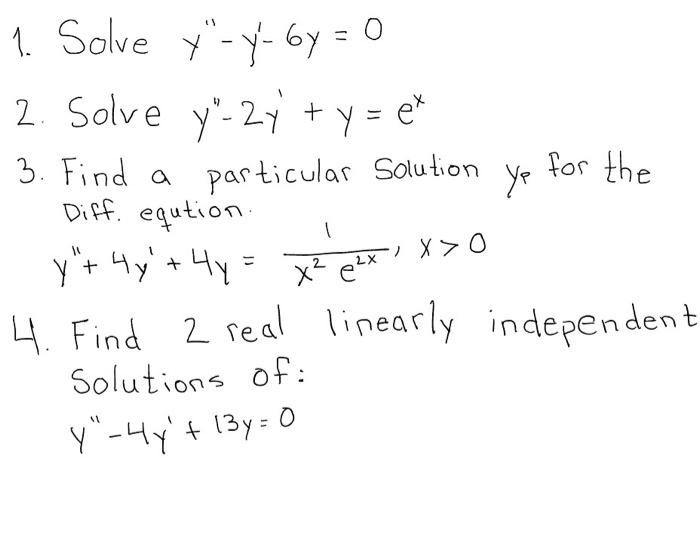 1. Solve y'' - y' - 6y = 0
2. Solve y'' - 2y' + y = eˣ
3. Find a particular Solution yₚ for the
Diff. eqution.
y'' + 4y' + 4y = 1/(x² e²ˣ), x > 0
4. Find 2 real linearly independent
Solutions of:
y'' - 4y' + 13y = 0